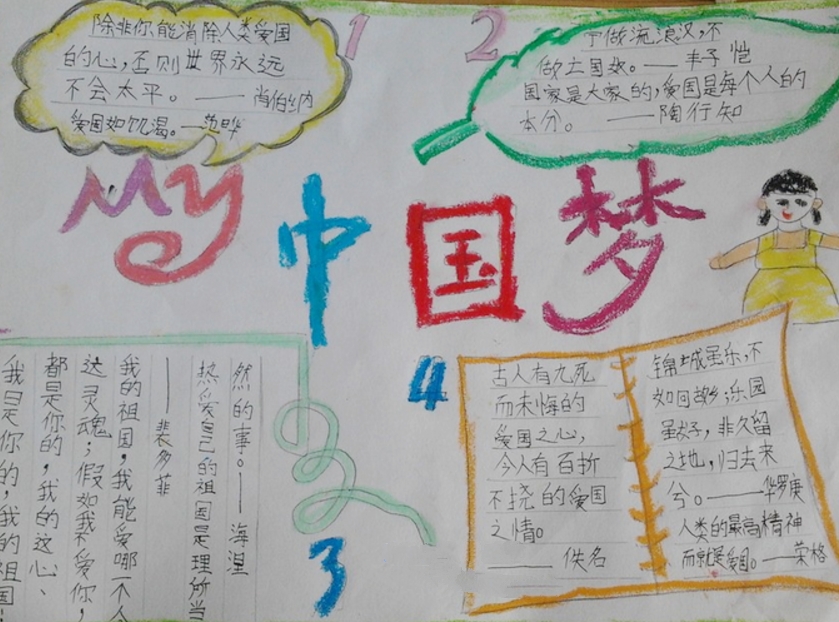 1
除非你能消除人类爱国
的心，否则世界永远
不会太平。——肖伯纳
爱国如饥渴。—范晔
2
宁做流浪汉，不
做亡国奴。——丰子恺
国家是大家的，爱国是每个人的
本分。——陶行知
My 中国梦
3
然的事。——海涅
热爱自己的祖国是理所当
——裴多菲
我的祖国，我能爱哪一个人
这灵魂；假如我不爱你，
都是你的，我的这心、
我是你的，我的祖国！
4
古人有九死
而未悔的
爱国之心，
今人有百折
不挠的爱国
之情。
——佚名
锦城虽乐，不
如回故乡；乐园
虽好，非久留
之地，归去来
兮。——华罗庚
人类的最高精神
而就是爱国。——荣格